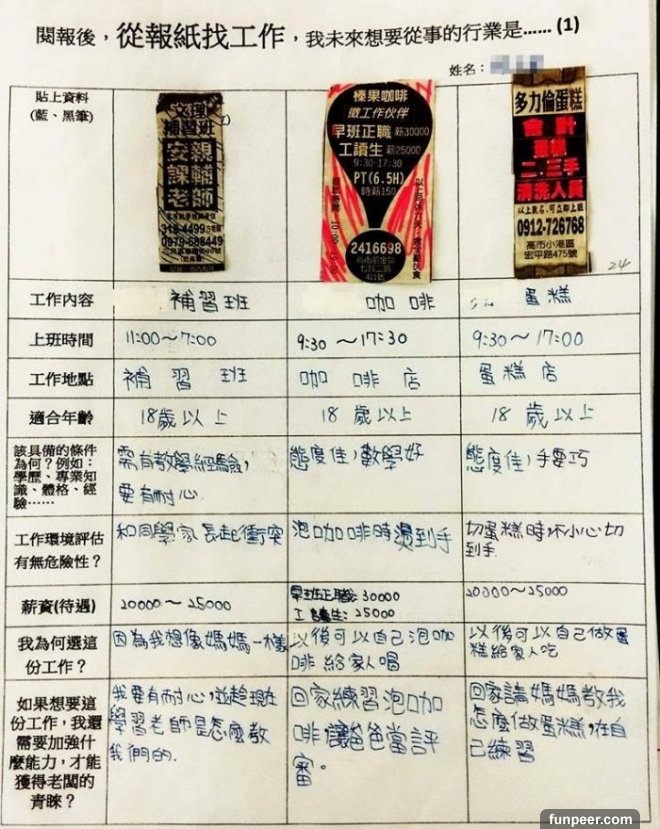 閱報後，從報紙找工作，我未來想要從事的行業是...... (1)
姓名：
貼上資料
(藍、黑筆)
文理
補習班
安親
課輔
老師
318-4499
0979-688449
榛果咖啡
徵工作伙伴
早班正職 薪30000
工讀生 薪25000
9:30-17:30
PT(6.5H)
時薪150
2416698
多力倫蛋糕
會計
二.三手
清洗人員
0912-726768
高市小港區
宏平路475號
24
工作內容
補習班
咖啡
蛋糕
上班時間
11:00～7:00
9:30～17:30
9:30～17:00
工作地點
補習班
咖啡店
蛋糕店
適合年齡
18歲以上
18歲以上
18歲以上
該具備的條件
為何？例如：
學歷、專業知
識、體格、經
驗......
需有教學經驗，
要有耐心.
態度佳，數學好
態度佳，手要巧
工作環境評估
有無危險性？
和同學家長起衝突
泡咖啡時燙到手
切蛋糕時不小心切
到手.
薪資(待遇)
20000～25000
早班正職：30000
工讀生：25000
20000～25000
我為何選這
份工作？
因為我想像媽媽一樣
以後可以自己泡咖
啡給家人喝
以後可以自己做蛋
糕給家人吃
如果想要這
份工作，我還
需要加強什
麼能力，才能
獲得老闆的
青睞？
我要有耐心，並趁現在
學習老師是怎麼教
我們的.
回家練習泡咖
啡讓爸爸當評
審。
回家請媽媽教我
怎麼做蛋糕，在自
己練習
funpeer.com